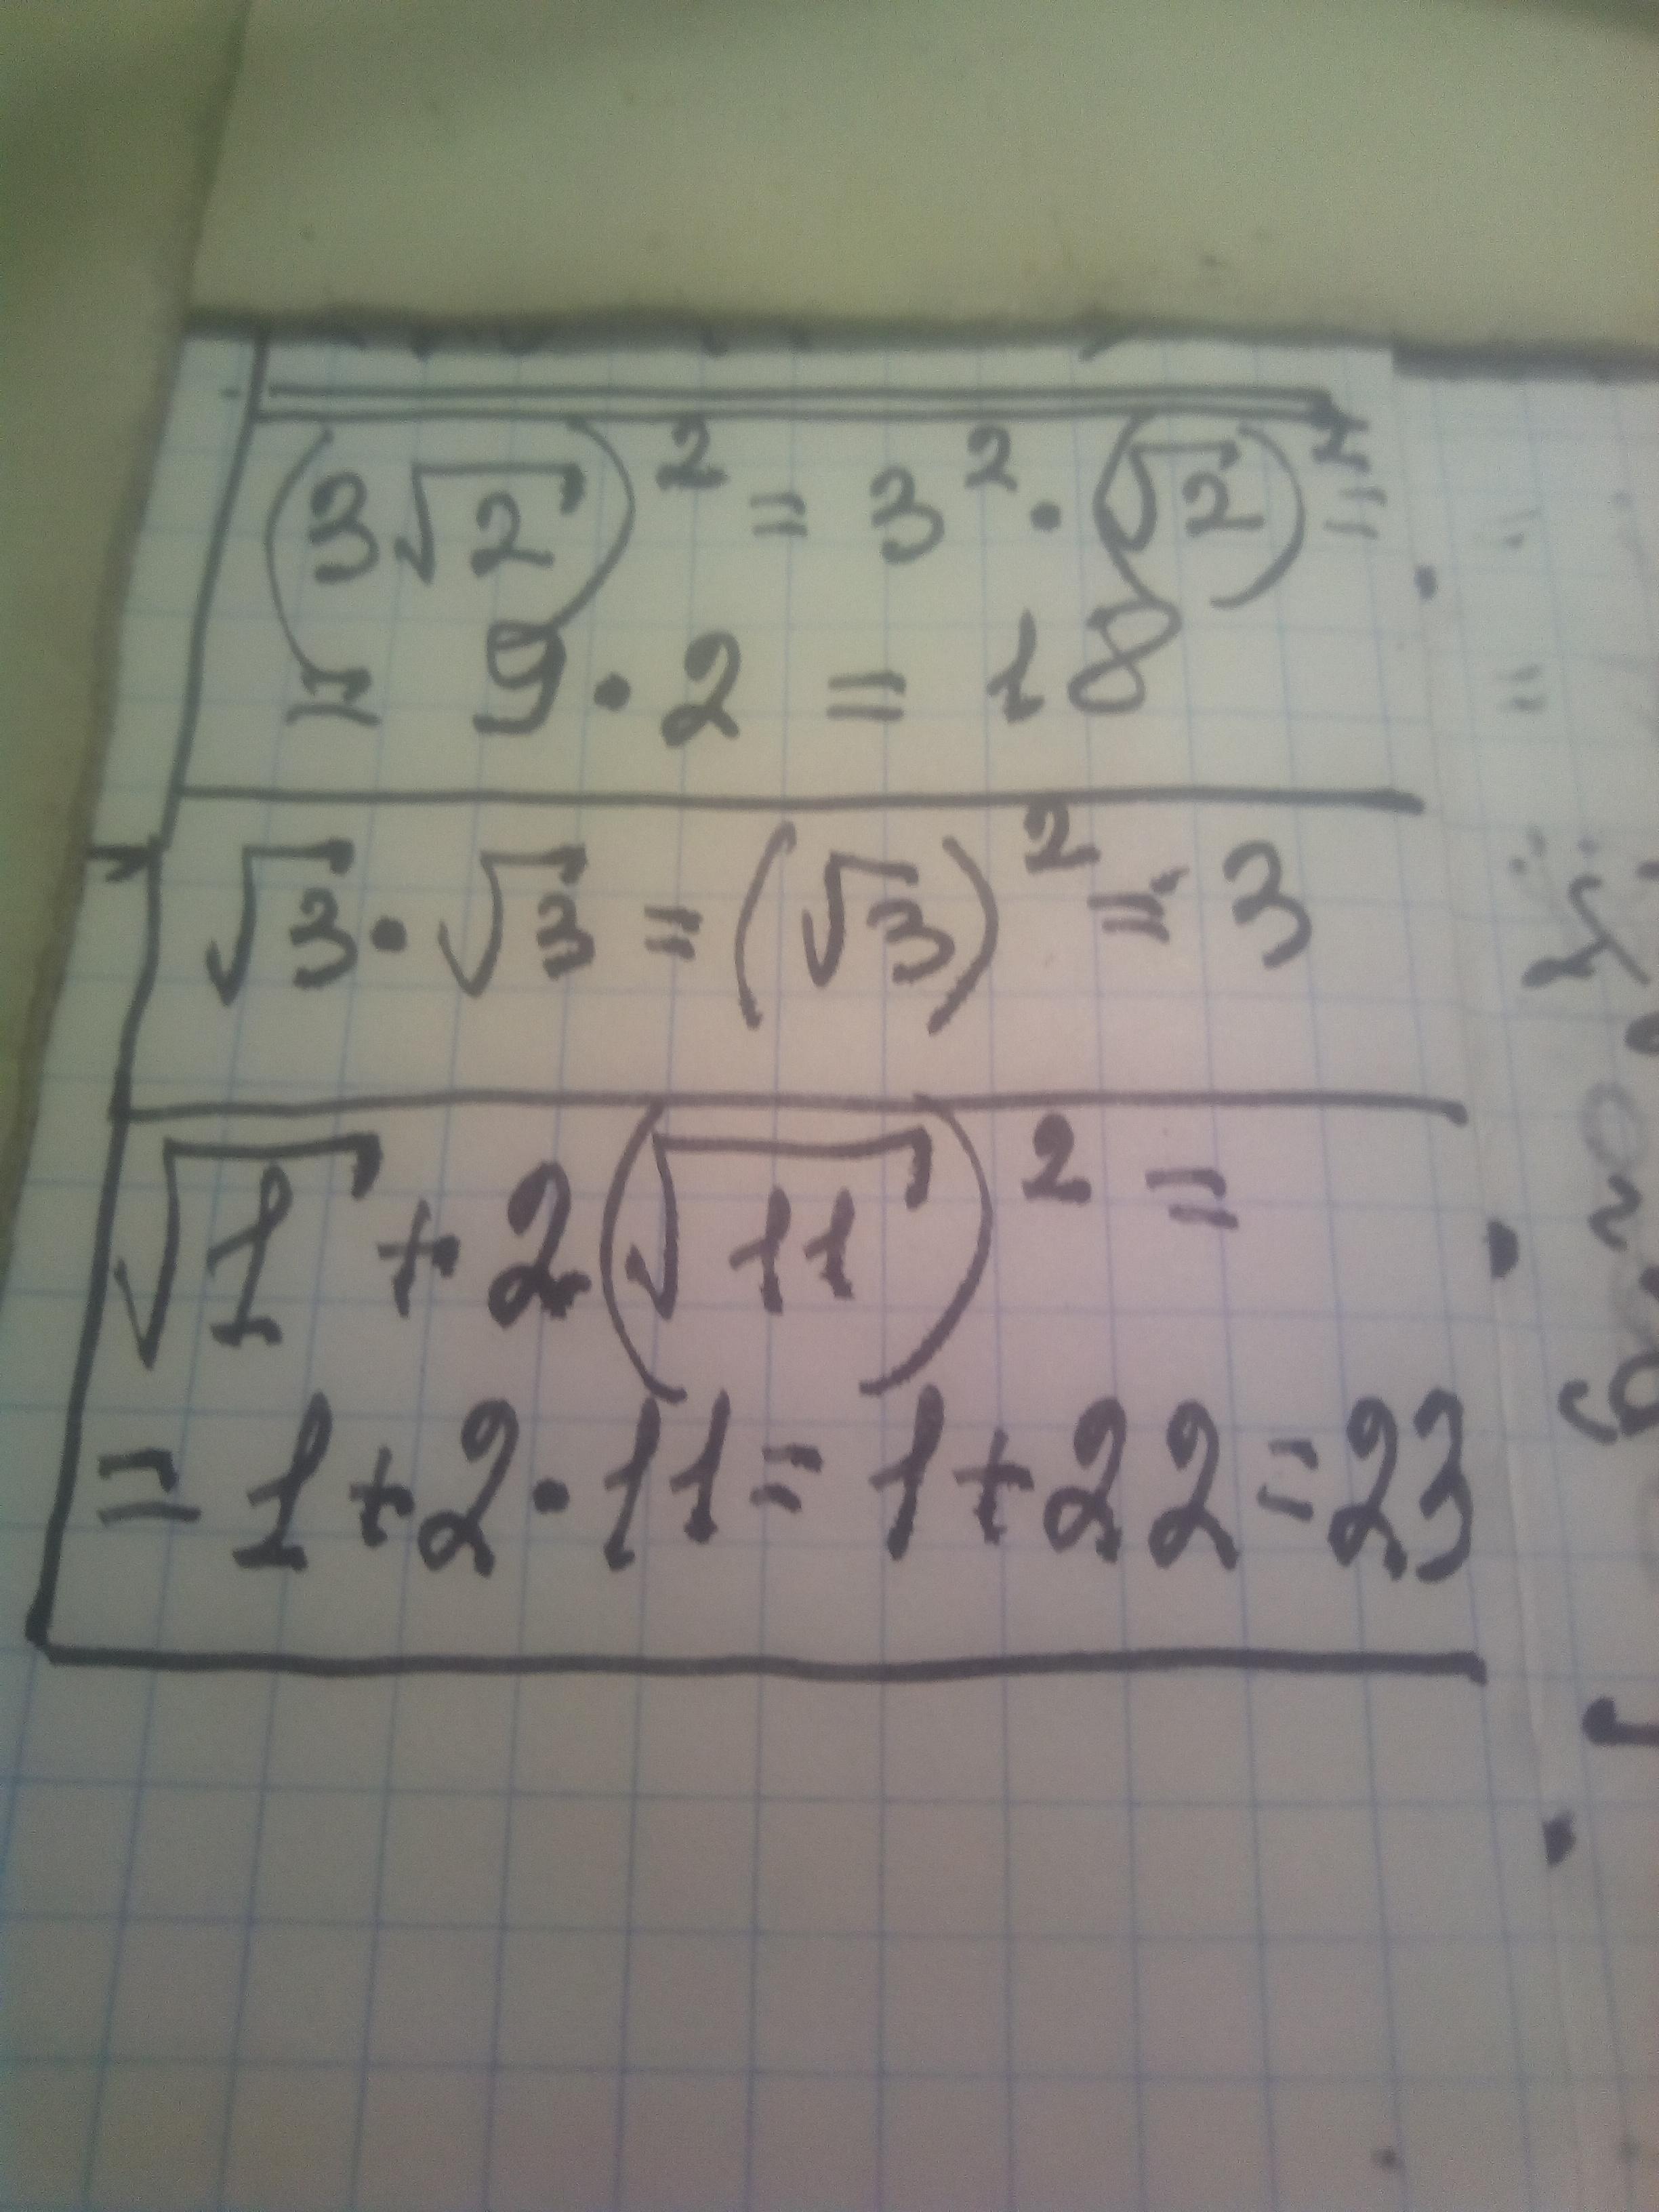 (3√2)² = 3² · (√2)² =
= 9 · 2 = 18
√3 · √3 = (√3)² = 3
√1 + 2(√11)² =
= 1 + 2 · 11 = 1 + 22 = 23